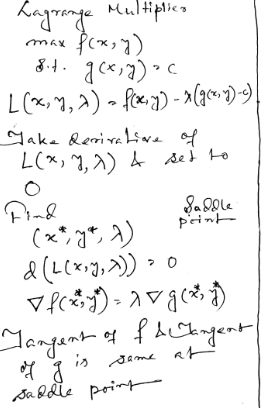 Lagrange Multiplier
max f(x,y)
s.t. g(x,y) = c
L(x,y,λ) = f(x,y) - λ(g(x,y)-c)
Take derivative of
L(x,y,λ) & set to
0
Find
Saddle
point
(x*,y*,λ)
d(L(x,y,λ)) = 0
∇f(x*,y*) = λ∇g(x*,y*)
Tangent of f & Tangent
of g is same at
saddle point